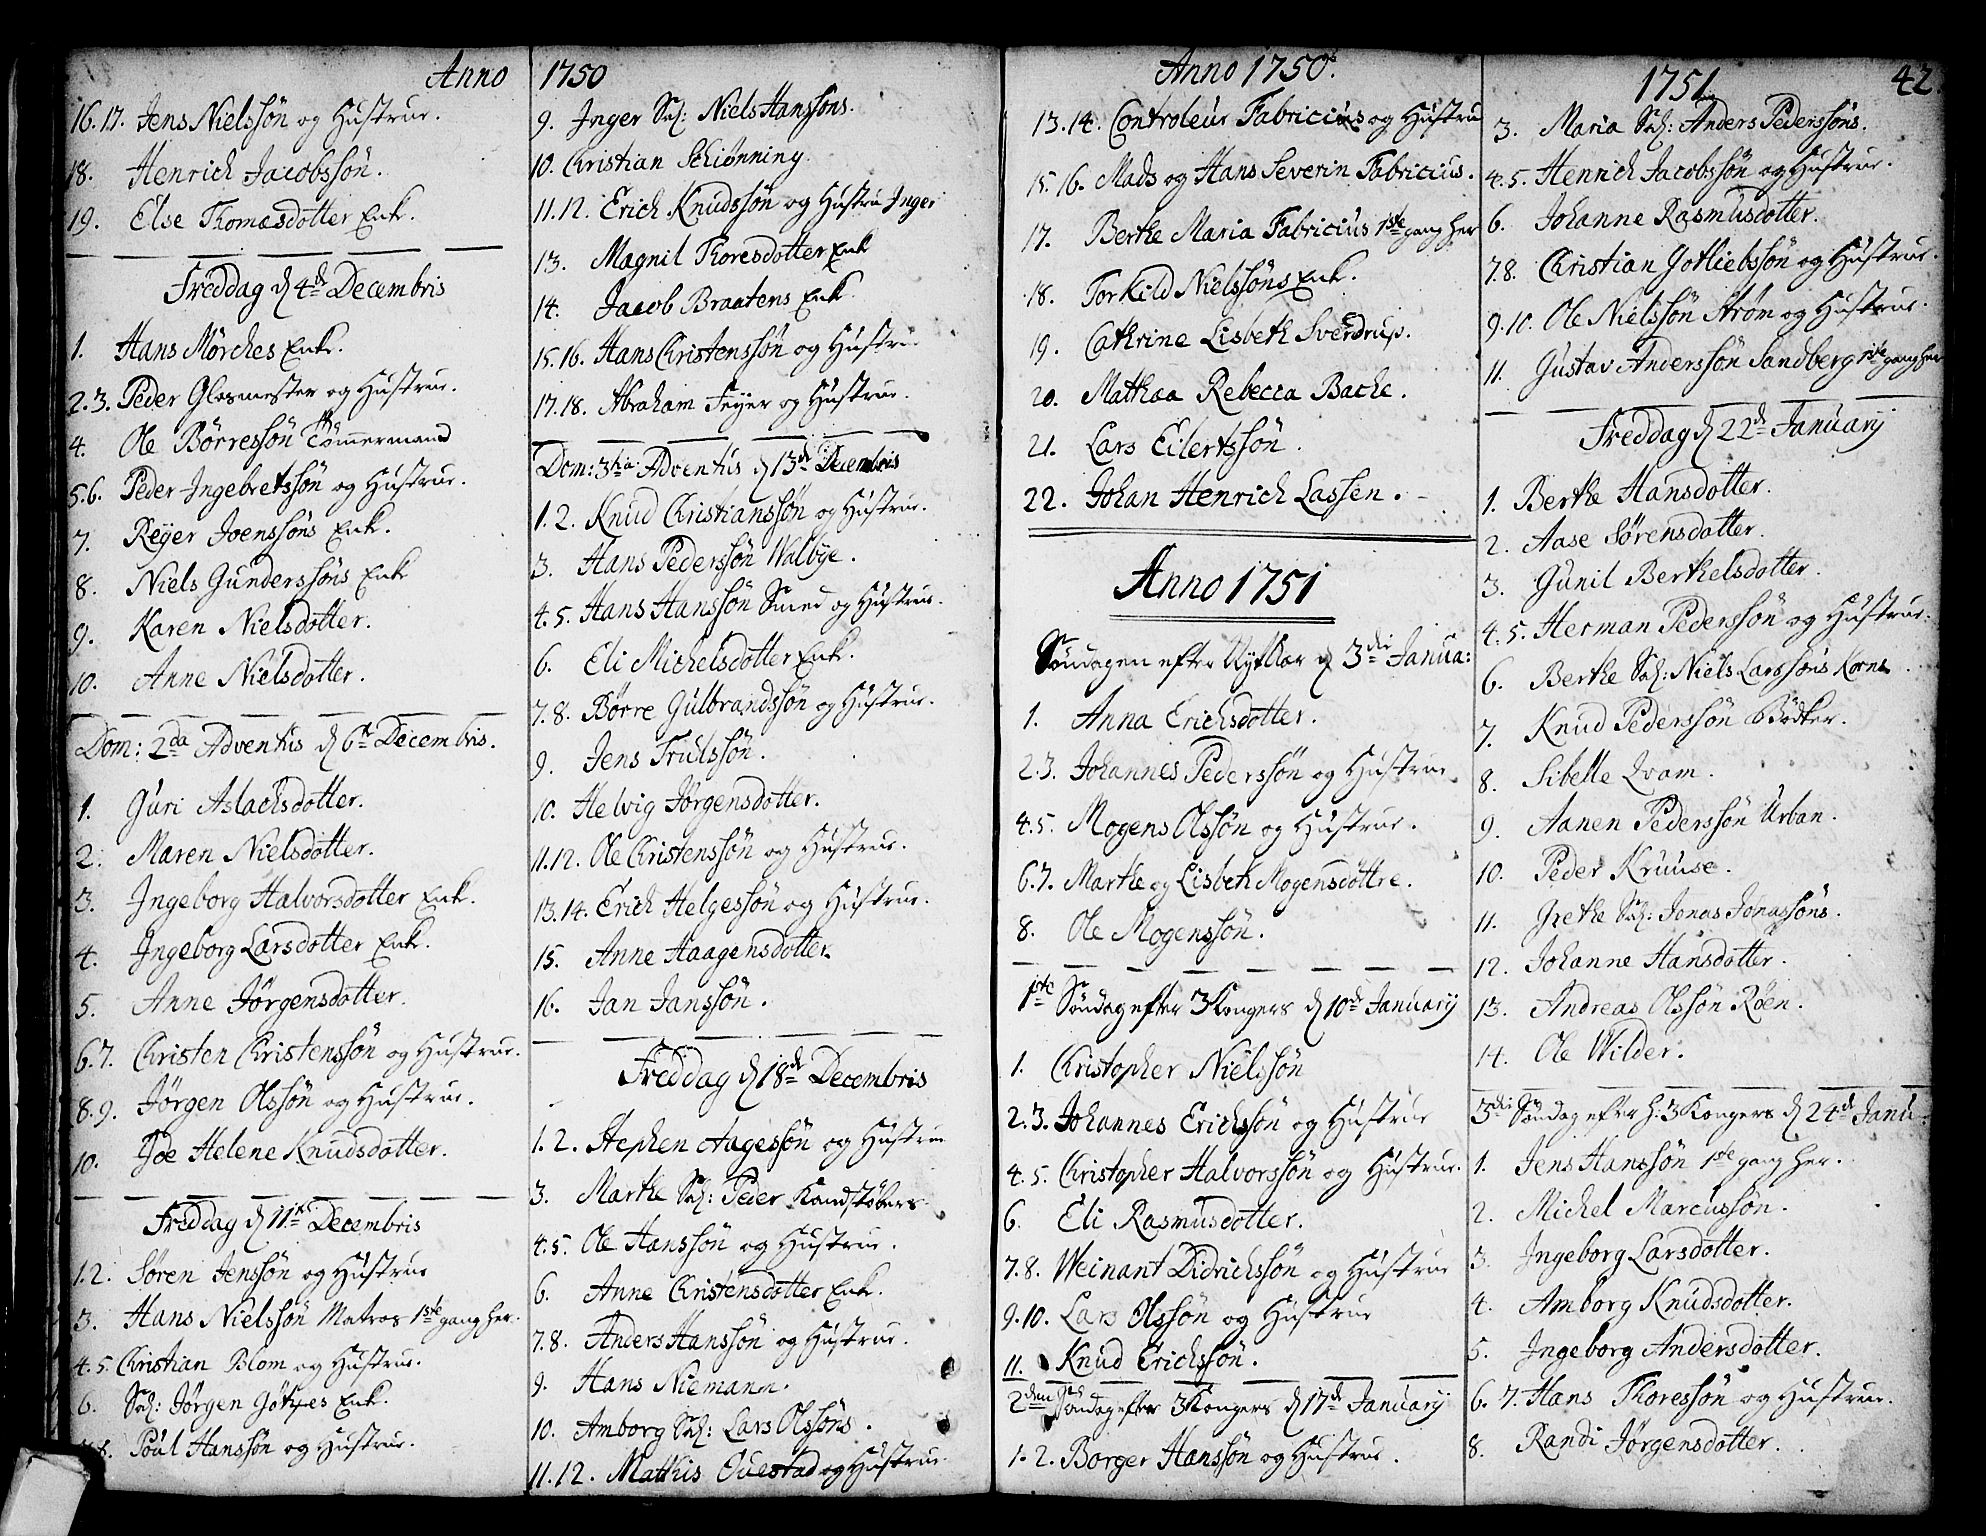 Anno
16.17. Jens Nielssøn og Hustrue.
18. Henrich Jacobssøn.
19. Else Thomæsdotter Enk.
Freddag d 4de Decembris
1. Hans Mørches Enke.
2.3. Peder Glasmester og Hustrue.
4. Ole Børressøn Tömmermand
5.6. Peder Ingebretssøn og Hustrue.
7. Reyer Joenssøns Enk.
8. Niels Gunderssøns Enk
9. Karen Nielsdotter.
10. Anne Nielsdotter.
Dom: 2da Adventus d 6te Decembris.
1. Guri Aslachsdotter.
2. Maren Nielsdotter.
3. Ingeborg Halvorsdotter Enk.
4. Ingeborg Larsdotter Enk.
5. Anne Jørgensdotter.
6.7. Christen Christenssøn og Hustrue.
8.9. Jørgen Olssøn og Hustrue.
10. Helene Knudsdotter.
Freddag d 11te Decembris
1.2. Søren Jenssøn og Hustrue
3. Hans Nielssøn Matros 1ste gang her.
4.5. Christian Blom og Hustrue.
6. Sal: Jørgen Enk.
Poul Hanssøn og Hustrue.
1750
9. Inger Sal: Niels Hanssøns.
10. Christian Schiønning.
11.12. Erich Knudssøn og Hustru Inger
13. Magnil Thoresdotter Enk
14. Jacob Braatens Enk.
15.16. Hans Christenssøn og Hustru.
17.18. Abraham Feyer og Hustrue.
Dom: 3tia Adventus d 13de Decembris
1.2. Knud Christianssøn og Hustrue.
3. Hans Pederssøn Walbye.
4.5. Hans Hanssøn Smed og Hustrue.
6. Eli Michelsdotter Enk.
7.8. Børre Gulbrandssøn og Hustrue.
9. Jens Trulssøn.
10. Helvig Jørgensdotter.
11.12. Ole Christenssøn og Hustrue.
13.14. Erich Helgessøn og Hustrue.
15. Anne Haagensdotter.
16. Jan Janssøn.
Freddag d 18de Decembris
1.2. Stephen Aagessøn og Hustrue
3. Marthe Sal: Peder Kandstøbers
4.5. Ole Hanssøn og Hustrue.
6. Anne Christensdotter Enk.
7.8. Anders Hanssøn og Hustrue.
9. Hans Niemann.
10. Amborg Sal: Lars Olssøns.
11.12. Matthis Questad og Hustrue
Anno 1750.
13.14. Controleur Fabricius og Hustru
15.16. Mads og Hans Severin Fabricius.
17. Berthe Maria Fabricius 1ste gang her
18. Torkild Nielssøns Enk.
19. Cathrine Lisbeth Sverdrup.
20. Mathæa Rebecca Bache.
21. Lars Eilertssøn.
22. Johan Henrich Lassen.
Anno 1751
Søndagen efter Nytaar d 3die Janua:
1. Anna Erichsdotter.
2.3. Johannes Pederssøn og Hustrue
4.5. Mogens Olssøn og Hustrue.
6.7. Marthe og Lisbeth Mogensdöttre.
8. Ole Mogenssøn.
1ste Søndag efter 3 Konger d 10de January
1. Christopher Nielssøn
2.3. Johannes Erichssøn og Hustrue
4.5. Christopher Halvorssøn og Hustrue.
6. Eli Rasmusdotter.
7.8. Weinant Didrichssøn og Hustrue
9.10. Lars Olssøn og Hustrue
11. Knud Erichssøn.
2den Søndag efter 3 Kongers d 17de January
1.2. Borger Hanssøn og Hustrue.
1751 42.
3. Maria Sal: Anders Pederssøns.
4.5. Henrich Jacobssøn og Hustrue.
6. Johanne Rasmusdotter.
7.8. Christian Gotliebssøn og Hustrue.
9.10. Ole Nielssøn Strøm og Hustrue.
11. Gustav Anderssøn Sandberg 1ste gang her
Freddag d 22de January
1. Berthe Hansdotter.
2. Aase Sørensdotter.
3. Gunil Berthelsdotter.
4.5. Herman Pederssøn og Hustrue.
6. Berthe Sal: Niels Larssøns Korns
7. Knud Pederssøn Bödker.
8. Sibelle Qvam.
9. Aanen Pederssøn Urban.
10. Peder Kruuse.
11. Grethe Sal: Jonas Jonassøns.
12. Johanne Hansdotter.
13. Andreas Olssøn Röen.
14. Ole Wilder.
3die Søndag efter H: 3 Kongers d 24de Janu:
1. Jens Hanssøn 1ste gang her.
2. Michel Marcussøn.
3. Ingeborg Larsdotter.
4. Amborg Knudsdotter.
5. Ingeborg Andersdotter.
6.7. Hans Thoressøn og Hustrue.
8. Randi Jørgensdotter.